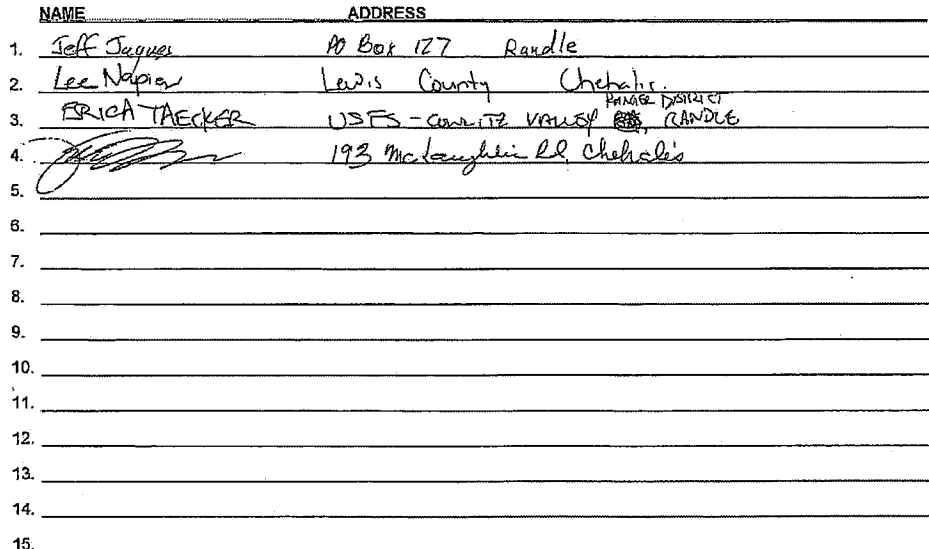 NAME ADDRESS
1. Jeff Jaques PO Box 127 Randle
2. Lee Napier Lewis County Chehalis.
RANGER DISTRICT
3. ERICA TAECKER USFS - COWLITZ VALLEY, RANDLE
4. 193 McLaughlin Rd, Chehalis
5.
6.
7.
8.
9.
10.
11.
12.
13.
14.
15.